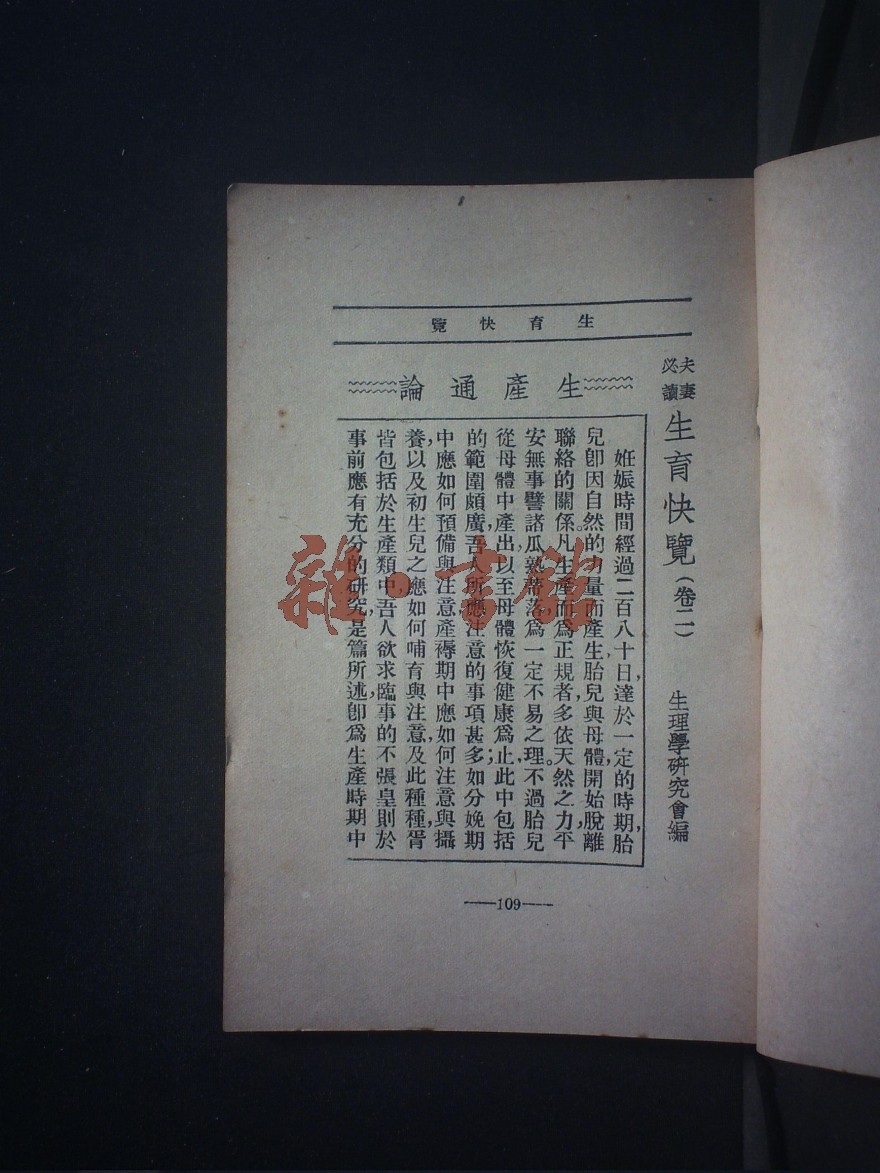 生育快覽
夫妻必讀
生育快覽(卷二)
生理學研究會編
生產通論
妊娠時間經過二百八十日,達於一定的時期,胎
兒卽因自然的力量而產生,胎兒與母體開始脫離
聯絡的關係。凡生產而爲正規者,多依天然之力,平
安無事,譬諸瓜熟蒂落,爲一定不易之理。不過胎兒
從母體中產出,以至母體恢復健康爲止,此中包括
的範圍頗廣,吾人所應注意的事項甚多;如分娩期
中應如何預備與注意,產褥期中應如何注意與攝
養,以及初生兒之應如何哺育與注意,及此種種,胥
皆包括於生產類中,吾人欲求臨事的不張皇,則於
事前應有充分的研究,是篇所述,卽爲生產時期中
—109—
雜·書館